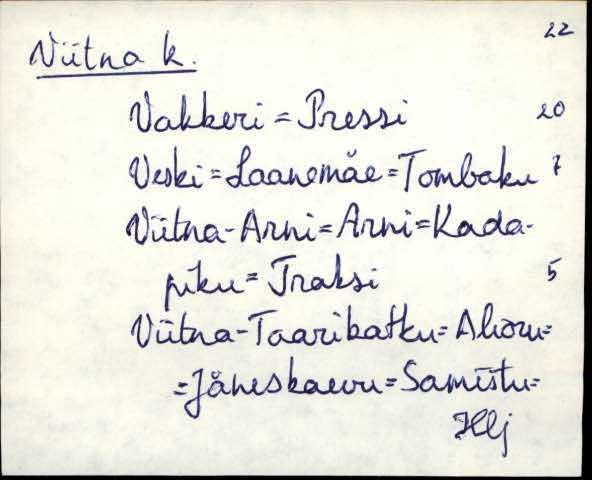 22
Viitna k.
Vakkeri = Pressi 20
Veski = Laanemäe = Tombaku 7
Viitna-Arni = Arni = Kada-
piku = Traksi 5
Viitna-Taarikatku = Aluoru =
= Jäneskaevu = Samistu =
Hlj